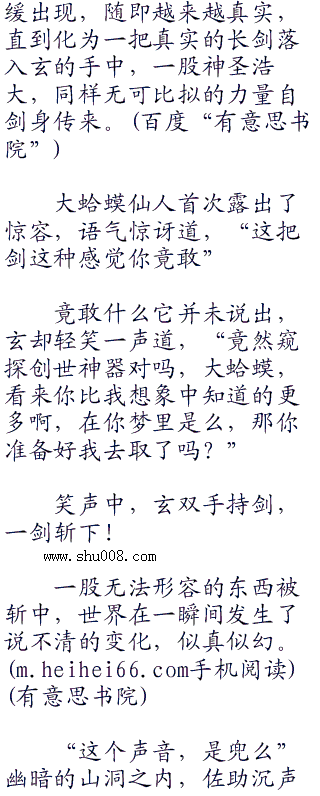 缓出现，随即越来越真实，
直到化为一把真实的长剑落
入玄的手中，一股神圣浩
大，同样无可比拟的力量自
剑身传来。(百度“有意思书
院”)
大蛤蟆仙人首次露出了
惊容，语气惊讶道，“这把
剑这种感觉你竟敢”
竟敢什么它并未说出，
玄却轻笑一声道，“竟然窥
探创世神器对吗，大蛤蟆，
看来你比我想象中知道的更
多啊，在你梦里是么，那你
准备好我去取了吗？”
笑声中，玄双手持剑，
一剑斩下！
www.shu008.com
一股无法形容的东西被
斩中，世界在一瞬间发生了
说不清的变化，似真似幻。
(m.heihei66.com手机阅读)
(有意思书院)
“这个声音，是兜么”
幽暗的山洞之内，佐助沉声